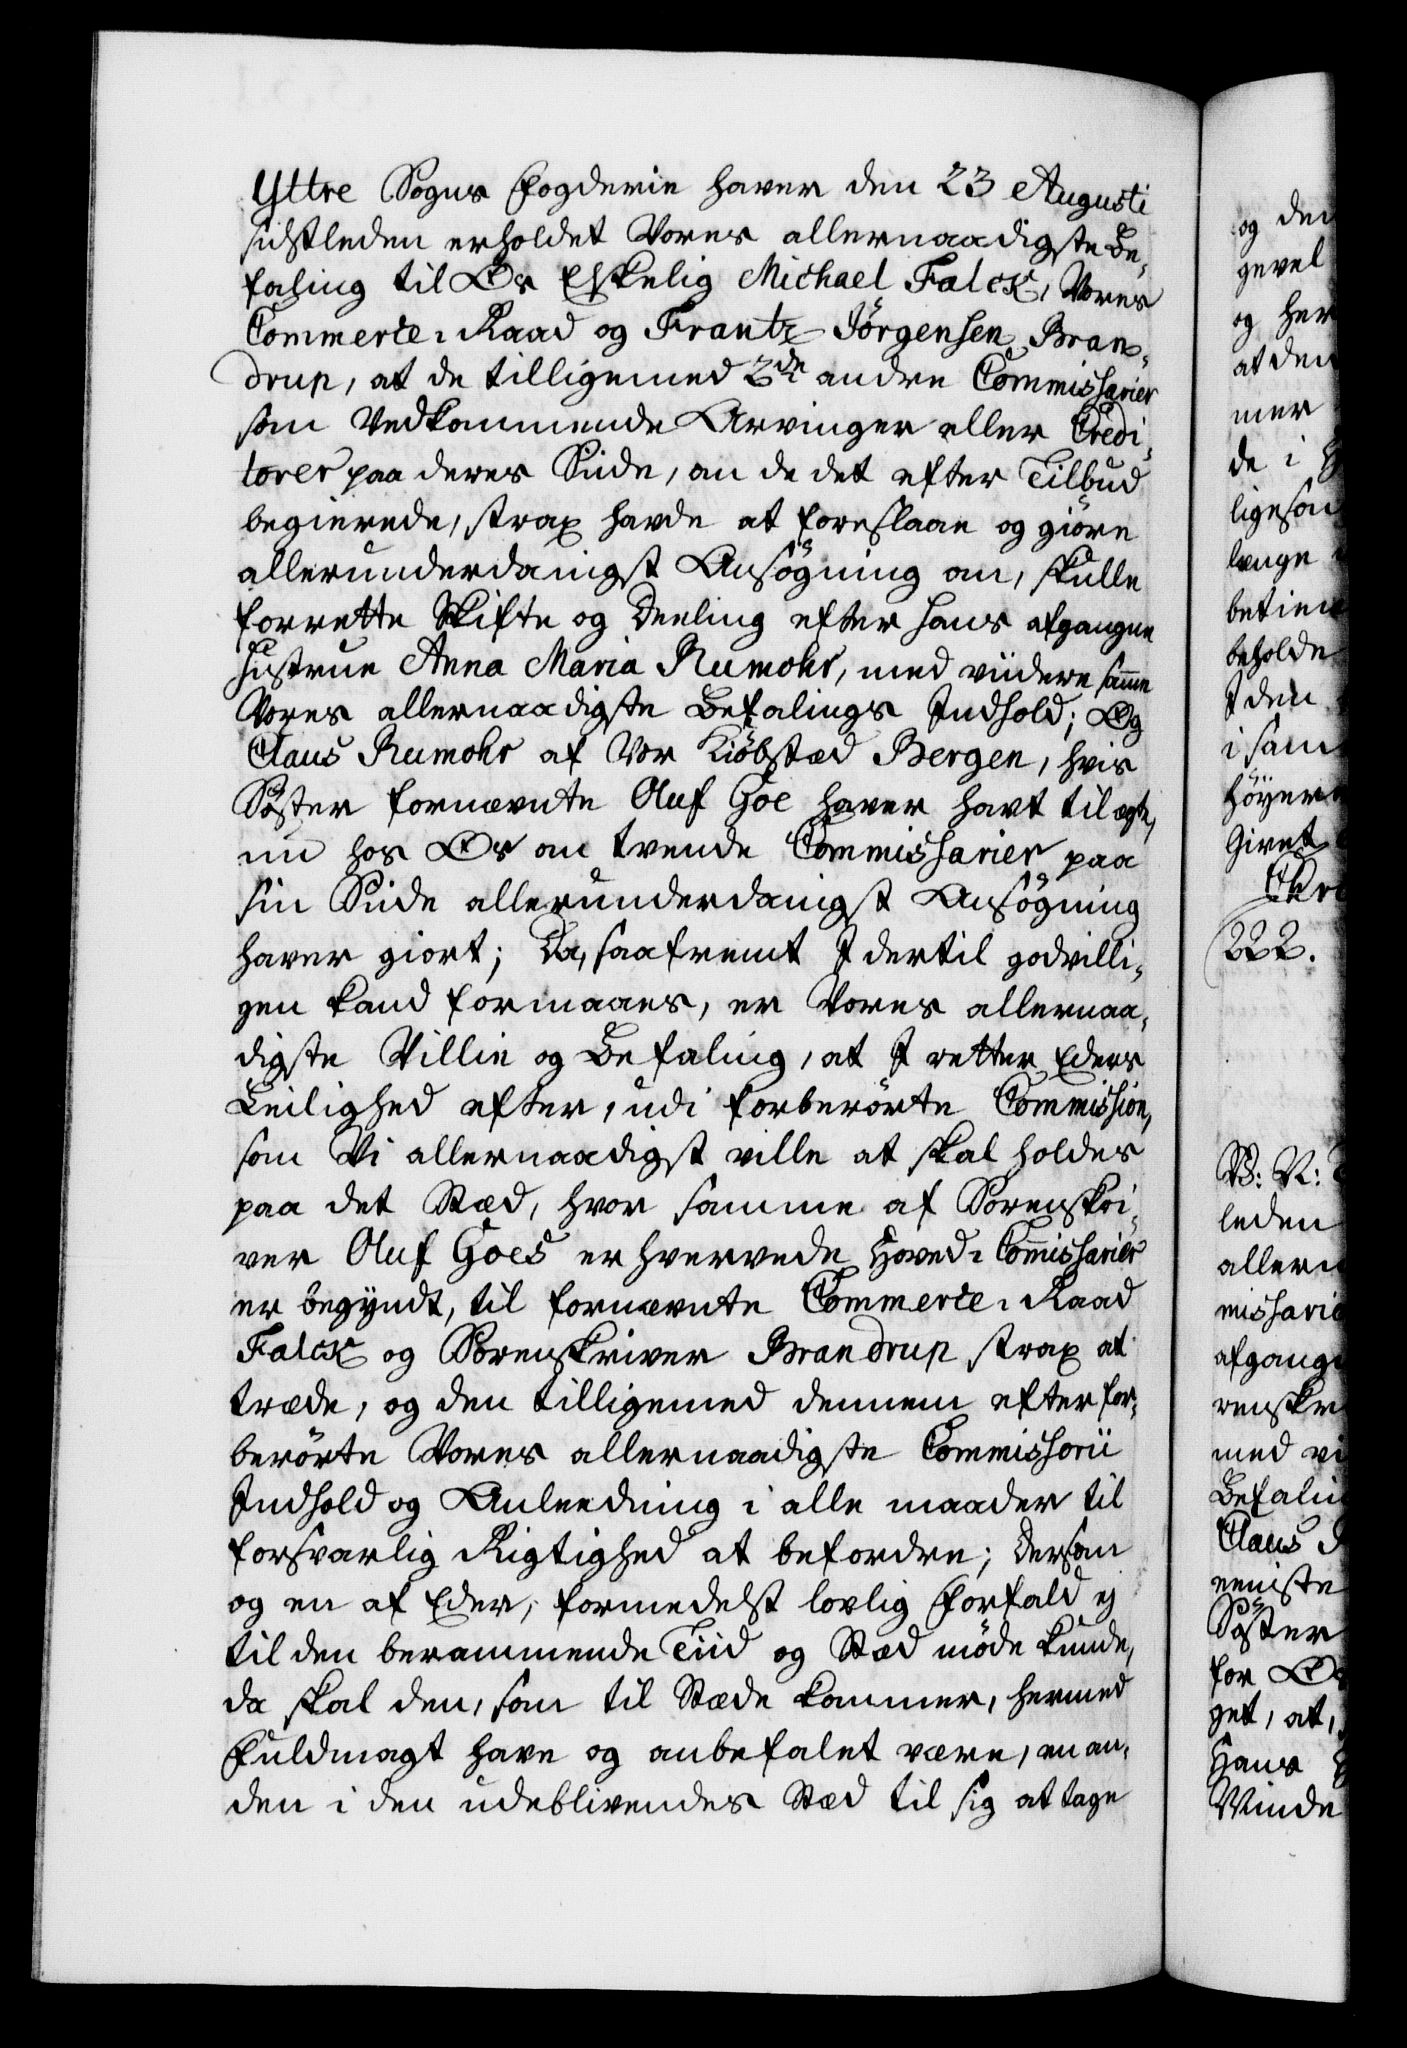 Yttre Sogns Fogderie haver den 23 Augusti
sidstleden erholdet Vores allernaadigste Be-
faling til Os Elskelig Michael Falck, Vores
Commerce-Raad og Frantz Jörgensen Bran-
drup, at de tilligemed 2de andre Commissarier
som Vedkommende Arvinger eller Credi-
torer paa deres Siide, om de det efter Tilbud
begierede, strax havde at foreslaae og giöre
allerunderdanigst Ansögning om, skulle
forrette Skifte og Deeling efter hans afgangne
Hustrue Anna Maria Rumohr, med viidere samme
Vores allernaadigste Befalings Indhold; Og
Claus Rumohr af Vor Kiöbstæd Bergen, hvis
Söster fornævnte Oluf Goe haver havt til ægte,
nu hos Os om tvende Commissarier paa
sin Siide allerunderdanigst Ansögning
haver giort; Da, saafremt I dertil godvilli-
gen kand formaaes, er Vores allernaa-
digste Villie og Befaling, at I retter Eders
Leilighed efter, udi forberörte Commission,
som Vi allernaadigst ville at skal holdes
paa det Stæd, hvor samme af Sorenskri-
ver Oluf Goes erhvervede Hoved-Commissarier
er begyndt, til fornævnte Commerce-Raad
Falck og Sorenskriver Brandrup strax at
træde, og den tilligemed dennem efter for-
berörte Vores allernaadigste Commissorii
Indhold og Anleedning i alle maader til
forsvarlig Rigtighed at befordre; Dersom
og en af Eder, formedelst lovlig Forfald ej
til den berammende Tiid og Stæd möde kunde,
da skal den, som til Stæde kommer, hermed
Fuldmagt have og anbefalet være, en an-
den i den udeblivendes Stæd til sig at tage
og den
gevel
og her
at den
mer
de i
ligesom
længe
betien
beholde
I den
i sam
höyer
Givet
222.
leden
allern
missarie
afgange
renskri
med vi
Befalin
Claus
eeniste
Söster
for Os
get, at,
Hans
Minde